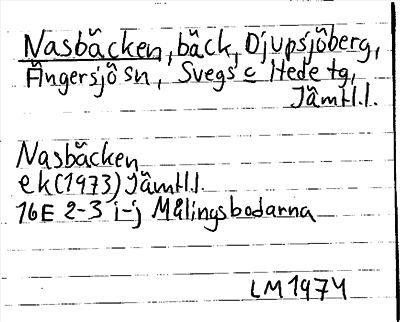 Nasbäcken, bäck, Djupsjöberg,
Ängersjö sn, Svegs o Hede tg,
Jämtl.l.
Nasbäcken
ek(1973) Jämtl.l.
16E 2-3 i-j Målingsbodarna
LM 1974